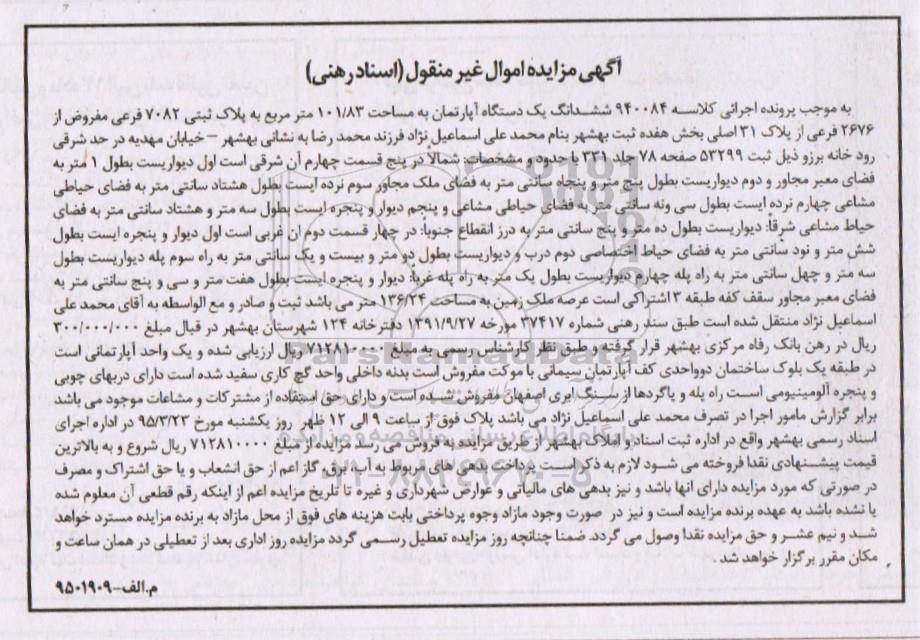 آگهی مزایده اموال غیر منقول (اسناد رهنی)
به موجب پرونده اجرائی کلاسه ۹۴۰۰۸۴ ششدانگ یک دستگاه آپارتمان به مساحت ۱۰۱/۸۳ متر مربع به پلاک ثبتی ۷۰۸۲ فرعی مفروض از
۲۶۷۶ فرعی از پلاک ۳۱ اصلی بخش هفده ثبت بهشهر بنام محمد علی اسماعیل نژاد فرزند محمد رضا به نشانی بهشهر – خیابان مهدیه در حد شرقی
رود خانه برزو ذیل ثبت ۵۳۲۹۹ صفحه ۷۸ جلد ۳۳۱ با حدود و مشخصات: شمالاً در پنج قسمت چهارم آن شرقی است اول دیواریست بطول ۱ متر به
فضای معبر مجاور و دوم دیواریست بطول پنج متر و پنجاه سانتی متر به فضای ملک مجاور سوم نرده ایست بطول هشتاد سانتی متر به فضای حیاطی
مشاعی چهارم نرده ایست بطول سی ونه سانتی متر به فضای حیاطی مشاعی و پنجم دیوار و پنجره ایست بطول سه متر و هشتاد سانتی متر به فضای
حیاط مشاعی شرقاً: دیواریست بطول ده متر و پنج سانتی متر به درز انقطاع جنوباً: در چهار قسمت دوم ان غربی است اول دیوار و پنجره ایست بطول
شش متر و نود سانتی متر به فضای حیاط اختصاصی دوم درب و دیواریست بطول دو متر و بیست و یک سانتی متر به راه سوم پله دیواریست بطول
سه متر و چهل سانتی متر به راه پله چهارم دیواریست بطول یک متر به راه پله غرباً: دیوار و پنجره ایست بطول هفت متر و سی و پنج سانتی متر به
فضای معبر مجاور سقف کفه طبقه ۳ اشتراکی است عرصه ملک زمین به مساحت ۱۳۶/۲۴ متر می باشد ثبت و صادر و مع الواسطه به آقای محمد علی
اسماعیل نژاد منتقل شده است طبق سند رهنی شماره ۳۷۴۱۷ مورخه ۱۳۹۱/۹/۲۷ دفترخانه ۱۲۴ شهرستان بهشهر در قبال مبلغ ۳۰۰/۰۰۰/۰۰۰
ریال در رهن بانک رفاه مرکزی بهشهر قرار گرفته و طبق نظر کارشناس رسمی به مبلغ ۷۱۲۸۱۰۰۰۰ ریال ارزیابی شده و یک واحد آپارتمانی است
در طبقه یک بلوک ساختمان دوواحدی کف آپارتمان سیمانی با موکت مفروش است بدنه داخلی واحد گچ کاری سفید شده است دارای دربهای چوبی
و پنجره آلومینیومی است راه پله و پاگردها از سنگ ابری اصفهان مفروش شده است و دارای حق استفاده از مشترکات و مشاعات موجود می باشد
برابر گزارش مامور اجرا در تصرف محمد علی اسماعیل نژاد می باشد پلاک فوق از ساعت ۹ الی ۱۲ ظهر روز یکشنبه مورخ ۹۵/۳/۲۳ در اداره اجرای
اسناد رسمی بهشهر واقع در اداره ثبت اسناد و املاک بهشهر از طریق مزایده به فروش می رسد مزایده از مبلغ ۷۱۲۸۱۰۰۰۰ ریال شروع و به بالاترین
قیمت پیشنهادی نقدا فروخته می شود لازم به ذکر است پرداخت بدهی های مربوط به آب، برق، گاز اعم از حق انشعاب و یا حق اشتراک و مصرف
در صورتی که مورد مزایده دارای انها باشد و نیز بدهی های مالیاتی و عوارض شهرداری و غیره تا تاریخ مزایده اعم از اینکه رقم قطعی آن معلوم شده
یا نشده باشد به عهده برنده مزایده است و نیز در صورت وجود مازاد وجوه پرداختی بابت هزینه های فوق از محل مازاد به برنده مزایده مسترد خواهد
شد و نیم عشر و حق مزایده نقدا وصول می گردد. ضمنا چنانچه روز مزایده تعطیل رسمی گردد مزایده روز اداری بعد از تعطیلی در همان ساعت و
مکان مقرر برگزار خواهد شد.
م.الف–۹۵۰۱۹۰۹
ParsNamadData
۰۲۱-۸۸۳۴۹۶۷۰-۵